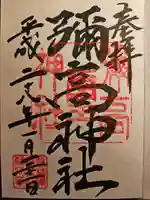 奉拝
彌高神社
平成二十八年一月三日